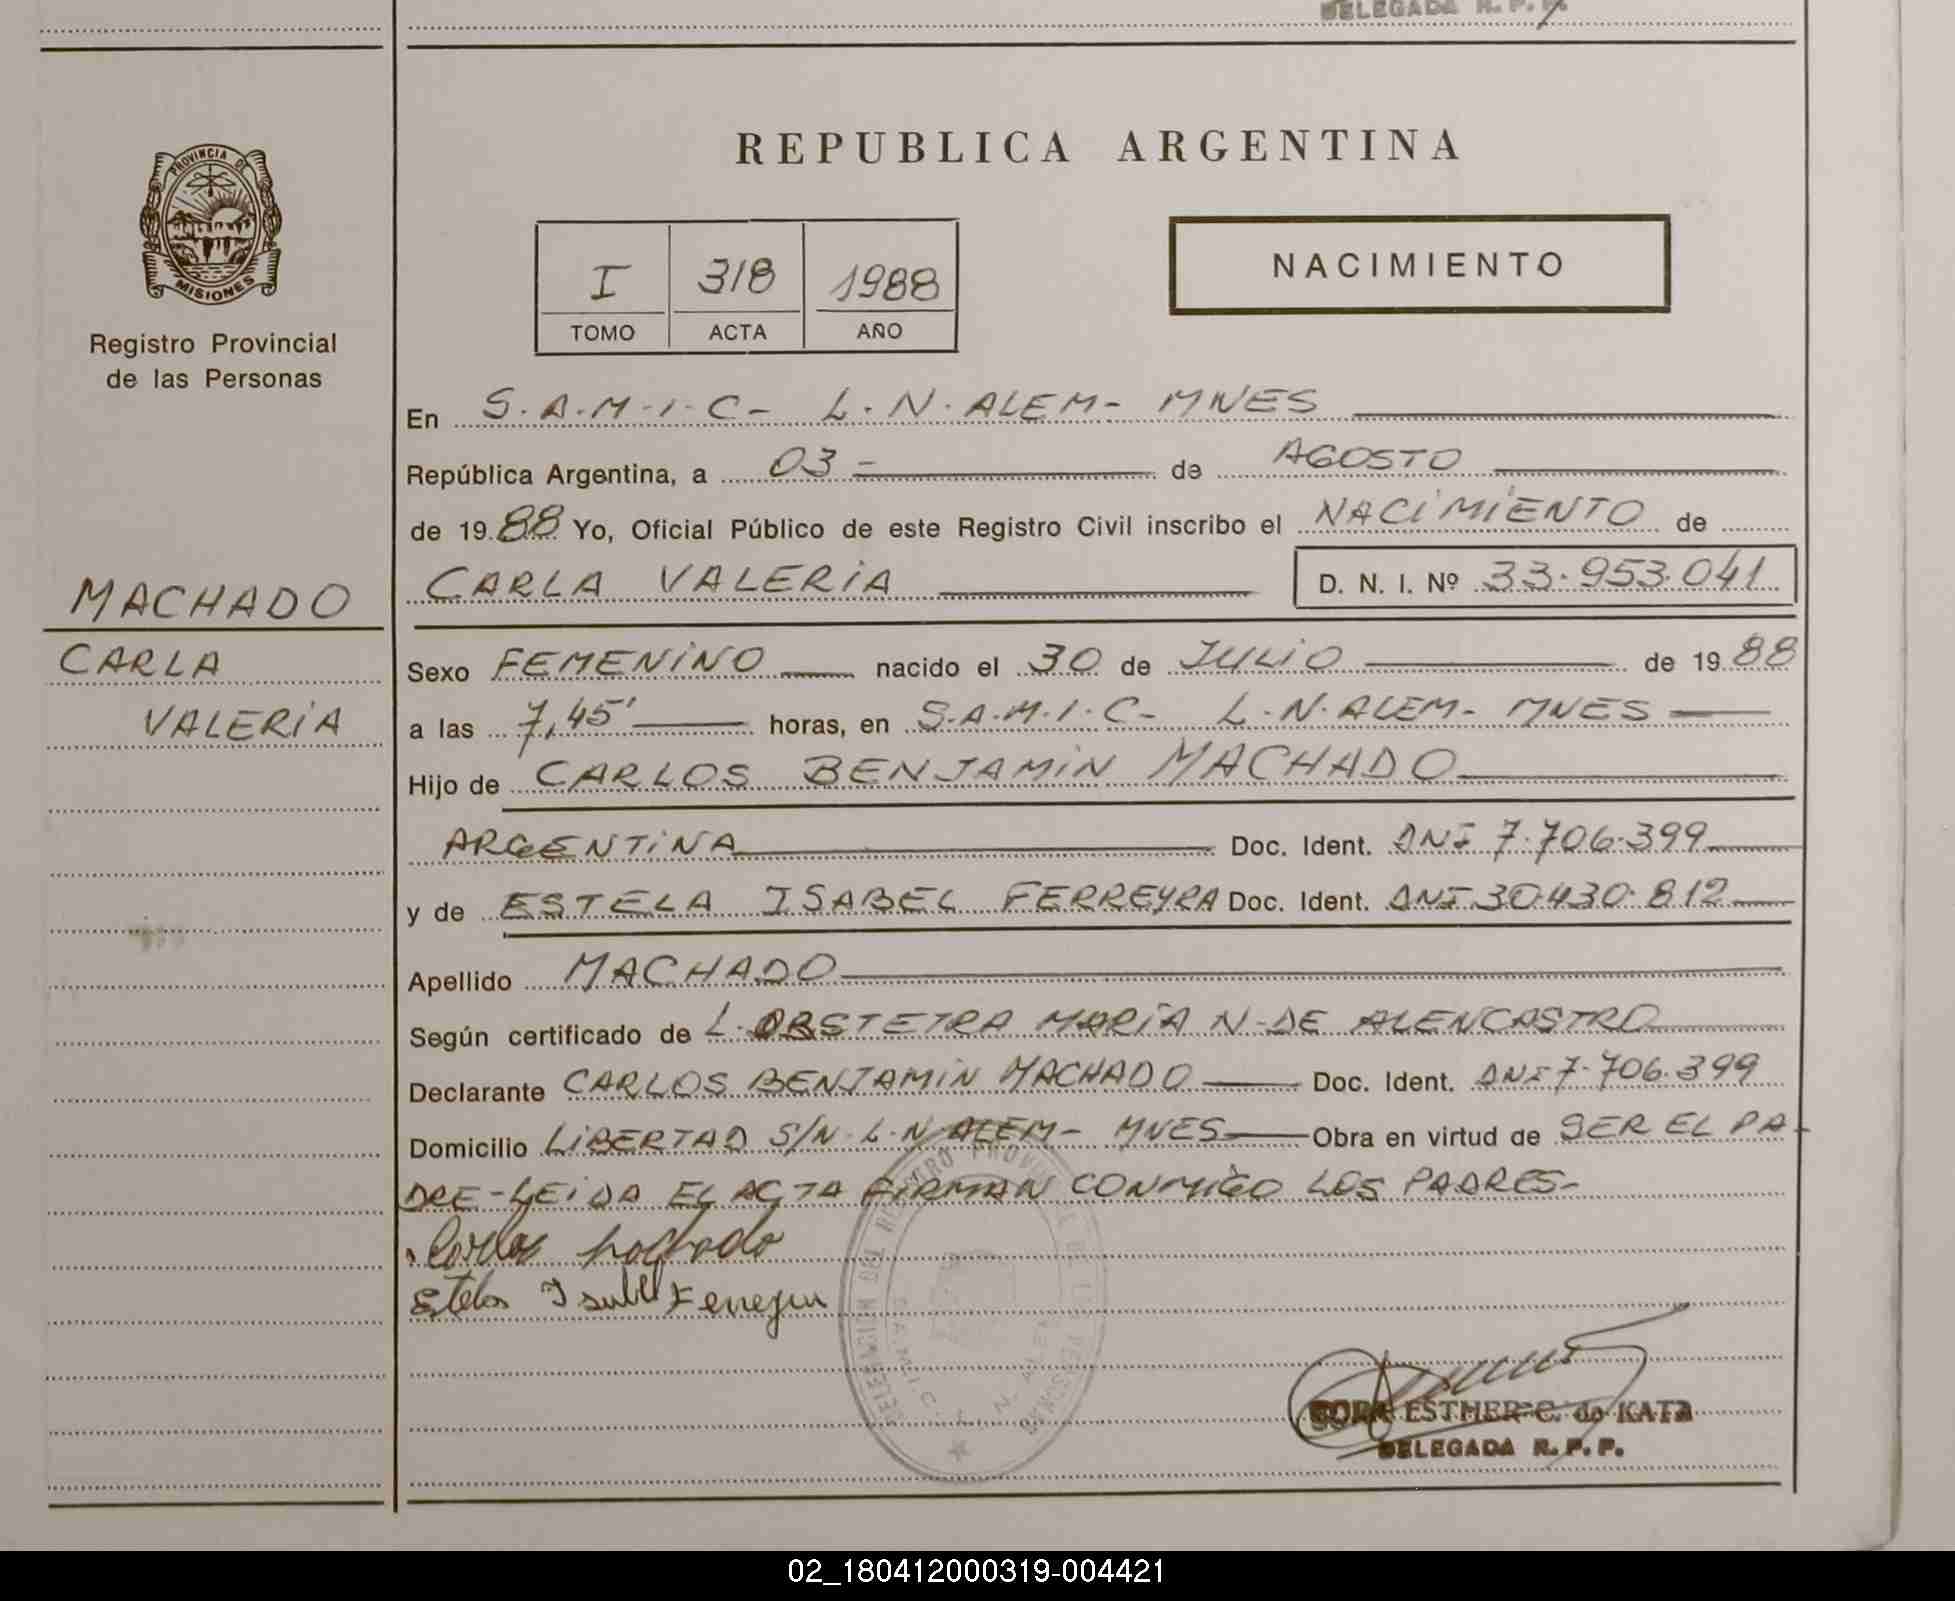 DELEGADA R. P. P.
PROVINCIA DE
MISIONES
Registro Provincial
de las Personas
MACHADO
CARLA
VALERIA
REPUBLICA ARGENTINA
I 318 1988
TOMO ACTA AÑO
NACIMIENTO
En S.A.M.I.C- L.N.ALEM- MNES
República Argentina, a 03- de AGOSTO
de 1988 Yo, Oficial Público de este Registro Civil inscribo el NACIMIENTO de
CARLA VALERIA D. N. I. Nº 33.953.041
Sexo FEMENINO nacido el 30 de JULIO de 1988
a las 7,45' horas, en S.A.M.I.C- L.N.ALEM- MNES
Hijo de CARLOS BENJAMIN MACHADO
ARGENTINA Doc. Ident. DNI 7.706.399
y de ESTELA ISABEL FERREYRA Doc. Ident. DNI 30.430.812
Apellido MACHADO
Según certificado de L.OBSTETRA MARIA N.DE ALENCASTRO
Declarante CARLOS BENJAMIN MACHADO Doc. Ident. DNI 7.706.399
Domicilio LIBERTAD S/N.L.N.ALEM- MNES Obra en virtud de SER EL PA-
DRE-LEIDA EL ACTA FIRMAN CONMIGO LOS PADRES-
Carlos Machado
Estela Isabel Ferreyra
DELEGACION DEL REGISTRO PROVINCIAL DE LAS PERSONAS
S.A.M.I.C. L. N. ALEM
ESTHER C. de KATA
DELEGADA R. P. P.
02_180412000319-004421